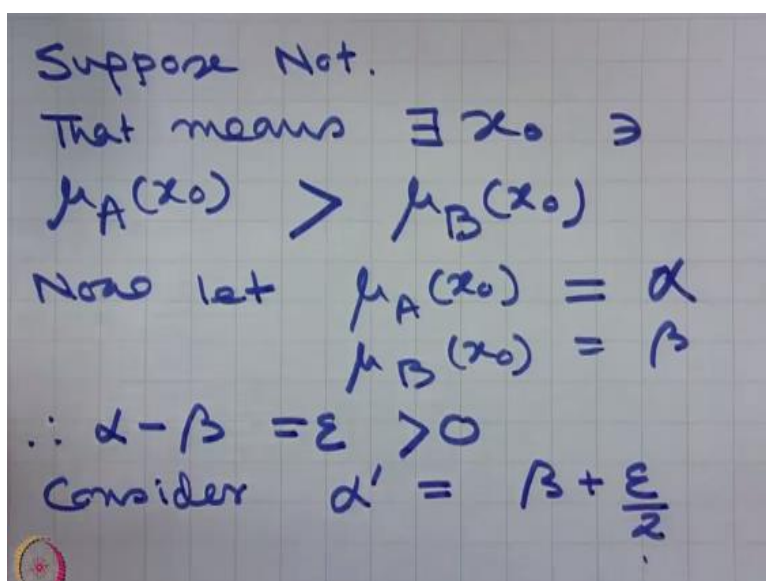 Suppose Not.
That means ∃ x₀ ∋
μ_A(x₀) > μ_B(x₀)
Now let μ_A(x₀) = α
μ_B(x₀) = β
∴ α - β = ε > 0
Consider α' = β + ε/2